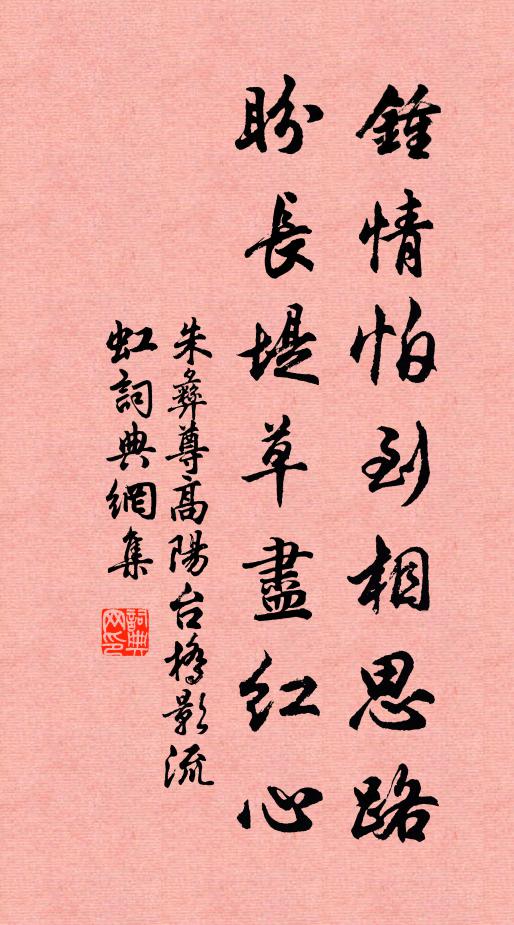 鍾情怕到相思路
盼長堤草盡紅心
朱彝尊高陽台橋影流
虹詞典網集
詞典
网印